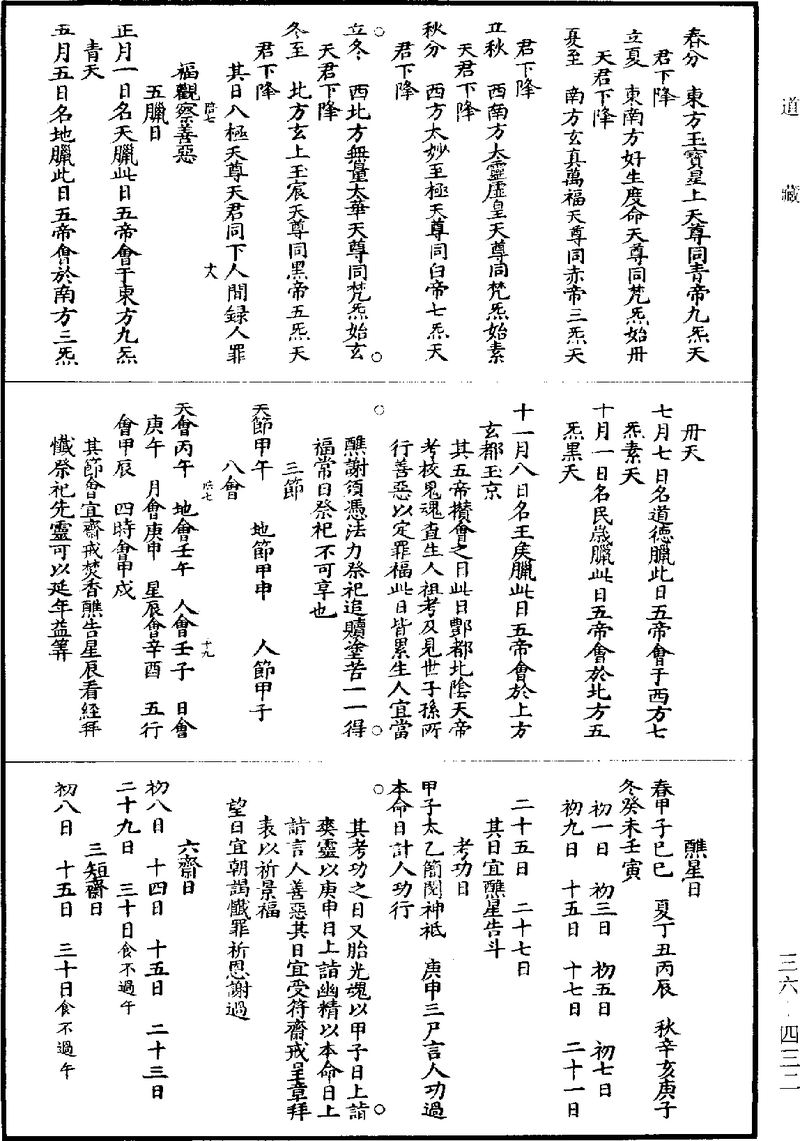 道藏
春分　東方玉寶皇上天尊同青帝九炁天
君下降
立夏　東南方好生度命天尊同梵炁始丹
天君下降
夏至　南方玄真萬福天尊同赤帝三炁天
君下降
立秋　西南方太靈虛皇天尊同梵炁始素
天君下降
秋分　西方太妙至極天尊同白帝七炁天
君下降
立冬　西北方無量太華天尊同梵炁始玄
天君下降
冬至　北方玄上玉宸天尊同黑帝五炁天
君下降
其日八極天尊天君同下人間録人罪
福觀察善惡
五臘日
正月一日名天臘此日五帝會于東方九炁
青天
五月五日名地臘此日五帝會於南方三炁
丹天
七月七日名道德臘此日五帝會于西方七
炁素天
十月一日名民歲臘此日五帝會於北方五
炁黑天
十一月八日名王侯臘此日五帝會於上方
玄都玉京
其五帝攢會之日此日酆都北陰天帝
考核鬼魂查生人祖考及見世子孫所
行善惡以定罪福此日皆累生人宜當
醮謝須憑法力祭祀追贖塗苦一一得
福常日祭祀不可享也
三節
天節甲午　地節甲申　人節甲子
八會
天會丙午　地會壬午　人會壬子　日會
庚午　月會庚申　星辰會辛酉　五行
會甲辰　四時會甲戌
其節會宜齋戒焚香醮告星辰看經拜
懺祭祀先靈可以延年益筭
醮星日
春甲子己巳　夏丁丑丙辰　秋辛亥庚子
冬癸未壬寅
初一日　初三日　初五日　初七日
初九日　十五日　十七日　二十一日
二十五日　二十七日
其日宜醮星告斗
考功日
甲子太乙簡閱神祇　庚申三尸言人功過
本命日計人功行
其考功之日又胎光魂以甲子日上詣
爽靈以庚申日上詣幽精以本命日上
詣言人善惡其日宜受符齋戒呈章拜
表以祈景福
望日宜朝謁懺罪祈恩謝過
六齋日
初八日　十四日　十五日　二十三日
二十九日　三十日食不過午
三短齋日
初八日　十五日　三十日食不過午
三六・四三二